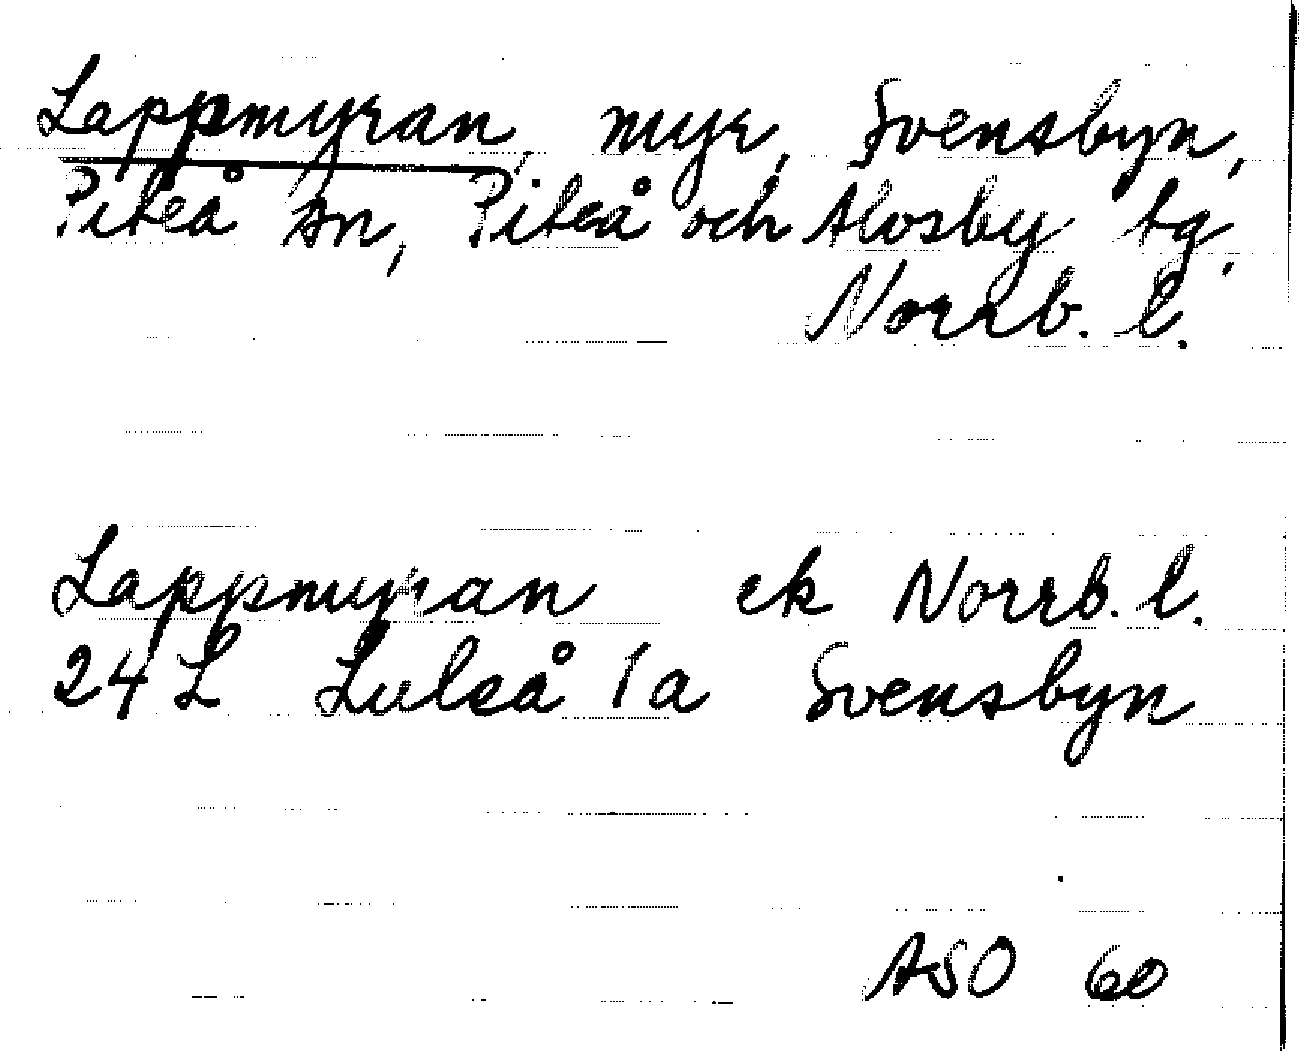 Lappmyran, myr, Svensbyn,
Piteå sn, Piteå och Älvsby tg,
Norrb. l.
Lappmyran ek Norrb. l.
24 L Luleå 1a Svensbyn
ASO 60